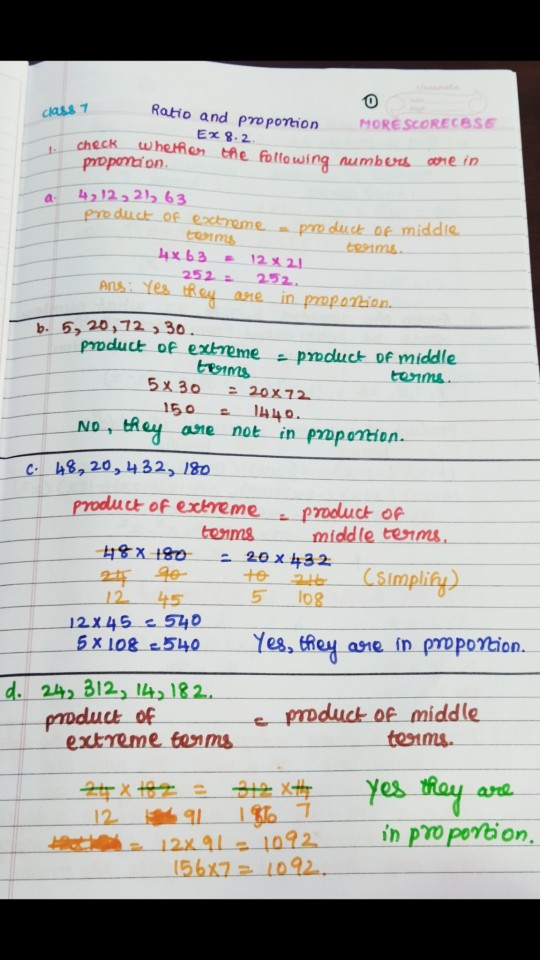 class 7
Ratio and proportion
①
Ex 8.2.
MORESCORECBSE
1. check whether the following numbers are in
proportion.
a. 4, 12, 21, 63
product of extreme = product of middle
terms terms.
4 x 63 = 12 x 21
252 = 252.
Ans: Yes they are in proportion.
b. 5, 20, 72, 30.
product of extreme = product of middle
terms terms.
5 x 30 = 20 x 72
150 = 1440.
No, they are not in proportion.
c. 48, 20, 432, 180
product of extreme = product of
terms middle terms.
48 x 180 = 20 x 432
24 90 10 216 (Simplify)
12 45 5 108
12 x 45 = 540
5 x 108 = 540 Yes, they are in proportion.
d. 24, 312, 14, 182.
product of = product of middle
extreme terms terms.
24 x 182 = 312 x 14 Yes they are
12 91 156 7 in proportion.
= 12 x 91 = 1092
156 x 7 = 1092.